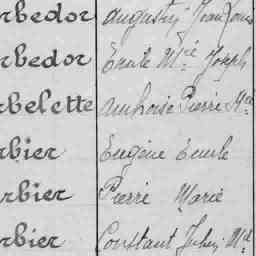 rbedor Augustin Jean Louis
rbedor Émile Mie Joseph
rbelette Ambroise Pierre Mie
rbier Eugène Emile
rbier Pierre Marie
rbier Constant Julien Mie